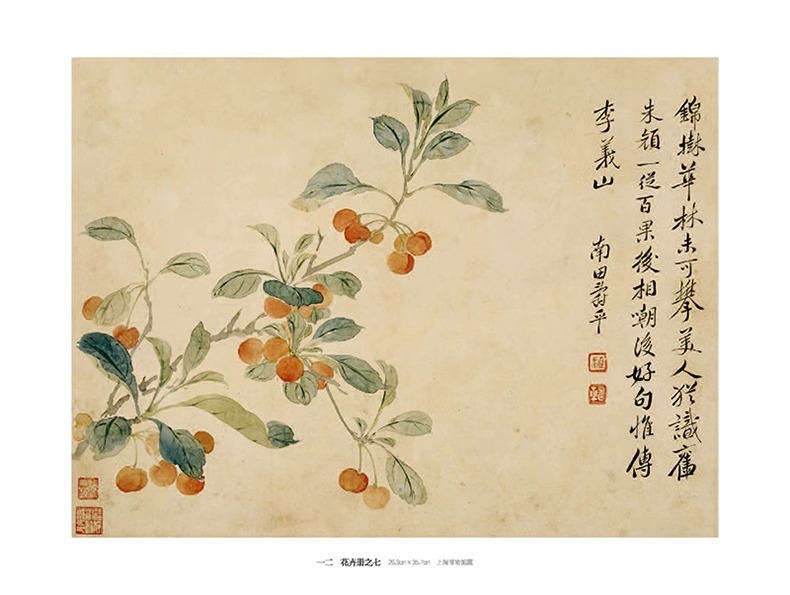 錦樹華林未可攀美人猶識舊
朱顏一從百果後相嘲後好句惟傳
李義山
南田壽平
一二 花卉册之七 26.3cm×35.7cm 上海博物馆藏